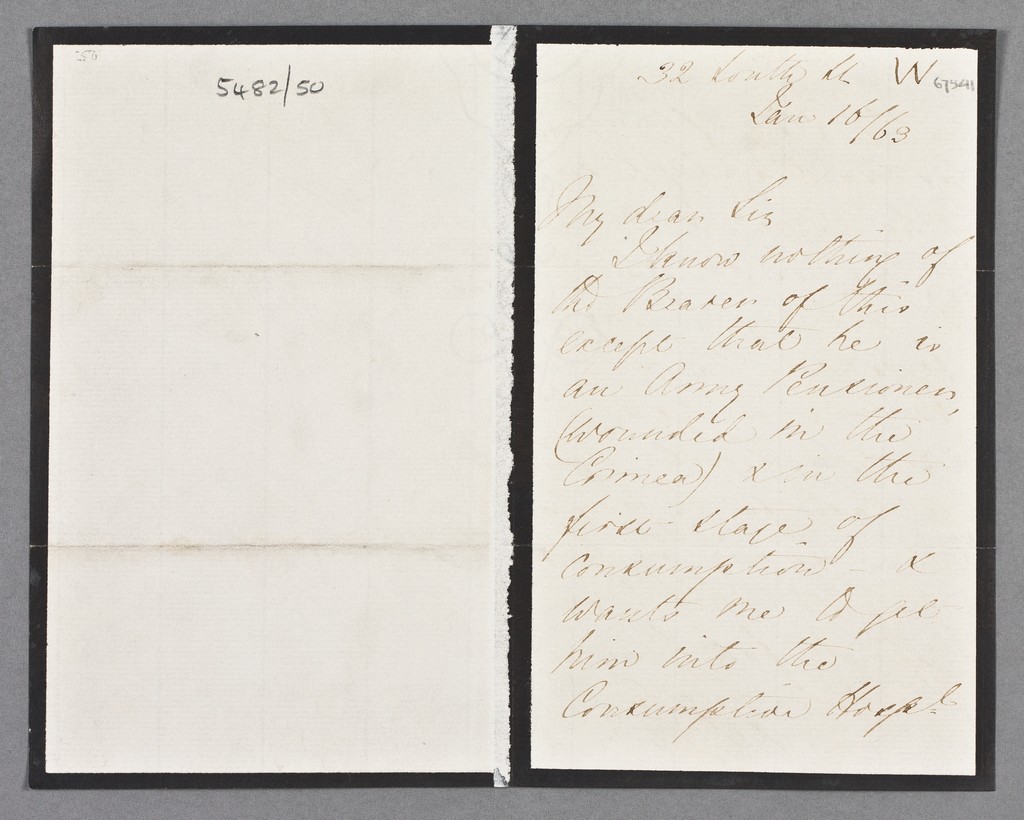 50
5482/50
32 South St W
67541
Jan 16/63
My dear Sir
I know nothing of
the Bearer of this
except that he is
an Army Pensioner,
(wounded in the
Crimea) & in the
first stage of
consumption - &
wants me to get
him into the
Consumptive Hospl.